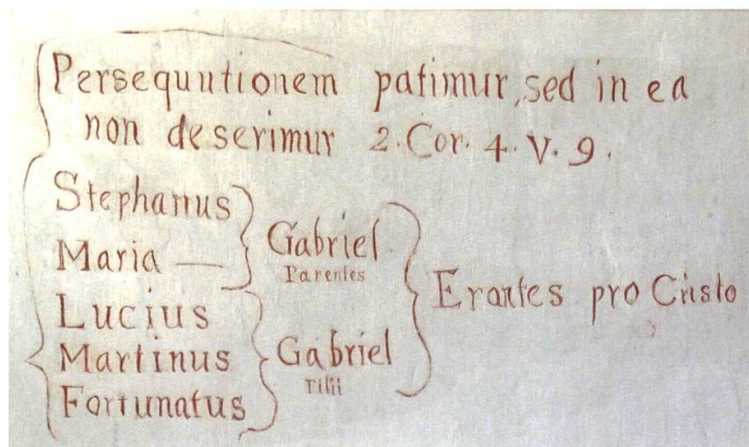 Persequutionem patimur, sed in ea
non deserimur 2. Cor. 4. V. 9.
Stephanus
Maria —
Gabriel
Parentes
Lucius
Martinus
Fortunatus
Gabriel
Filii
Erantes pro Cristo